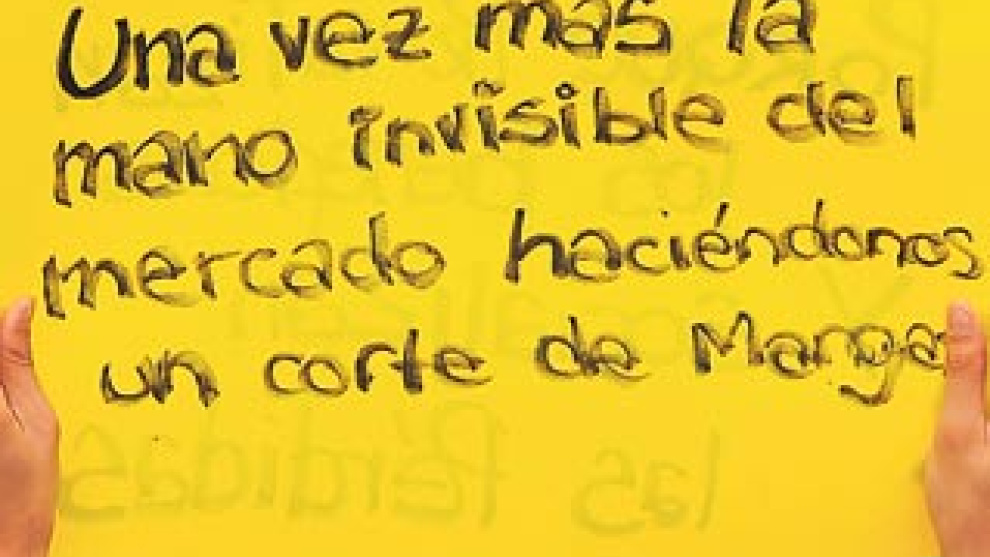 Una vez más la
mano invisible del
mercado haciéndonos
un corte de Manga
las pérdidas